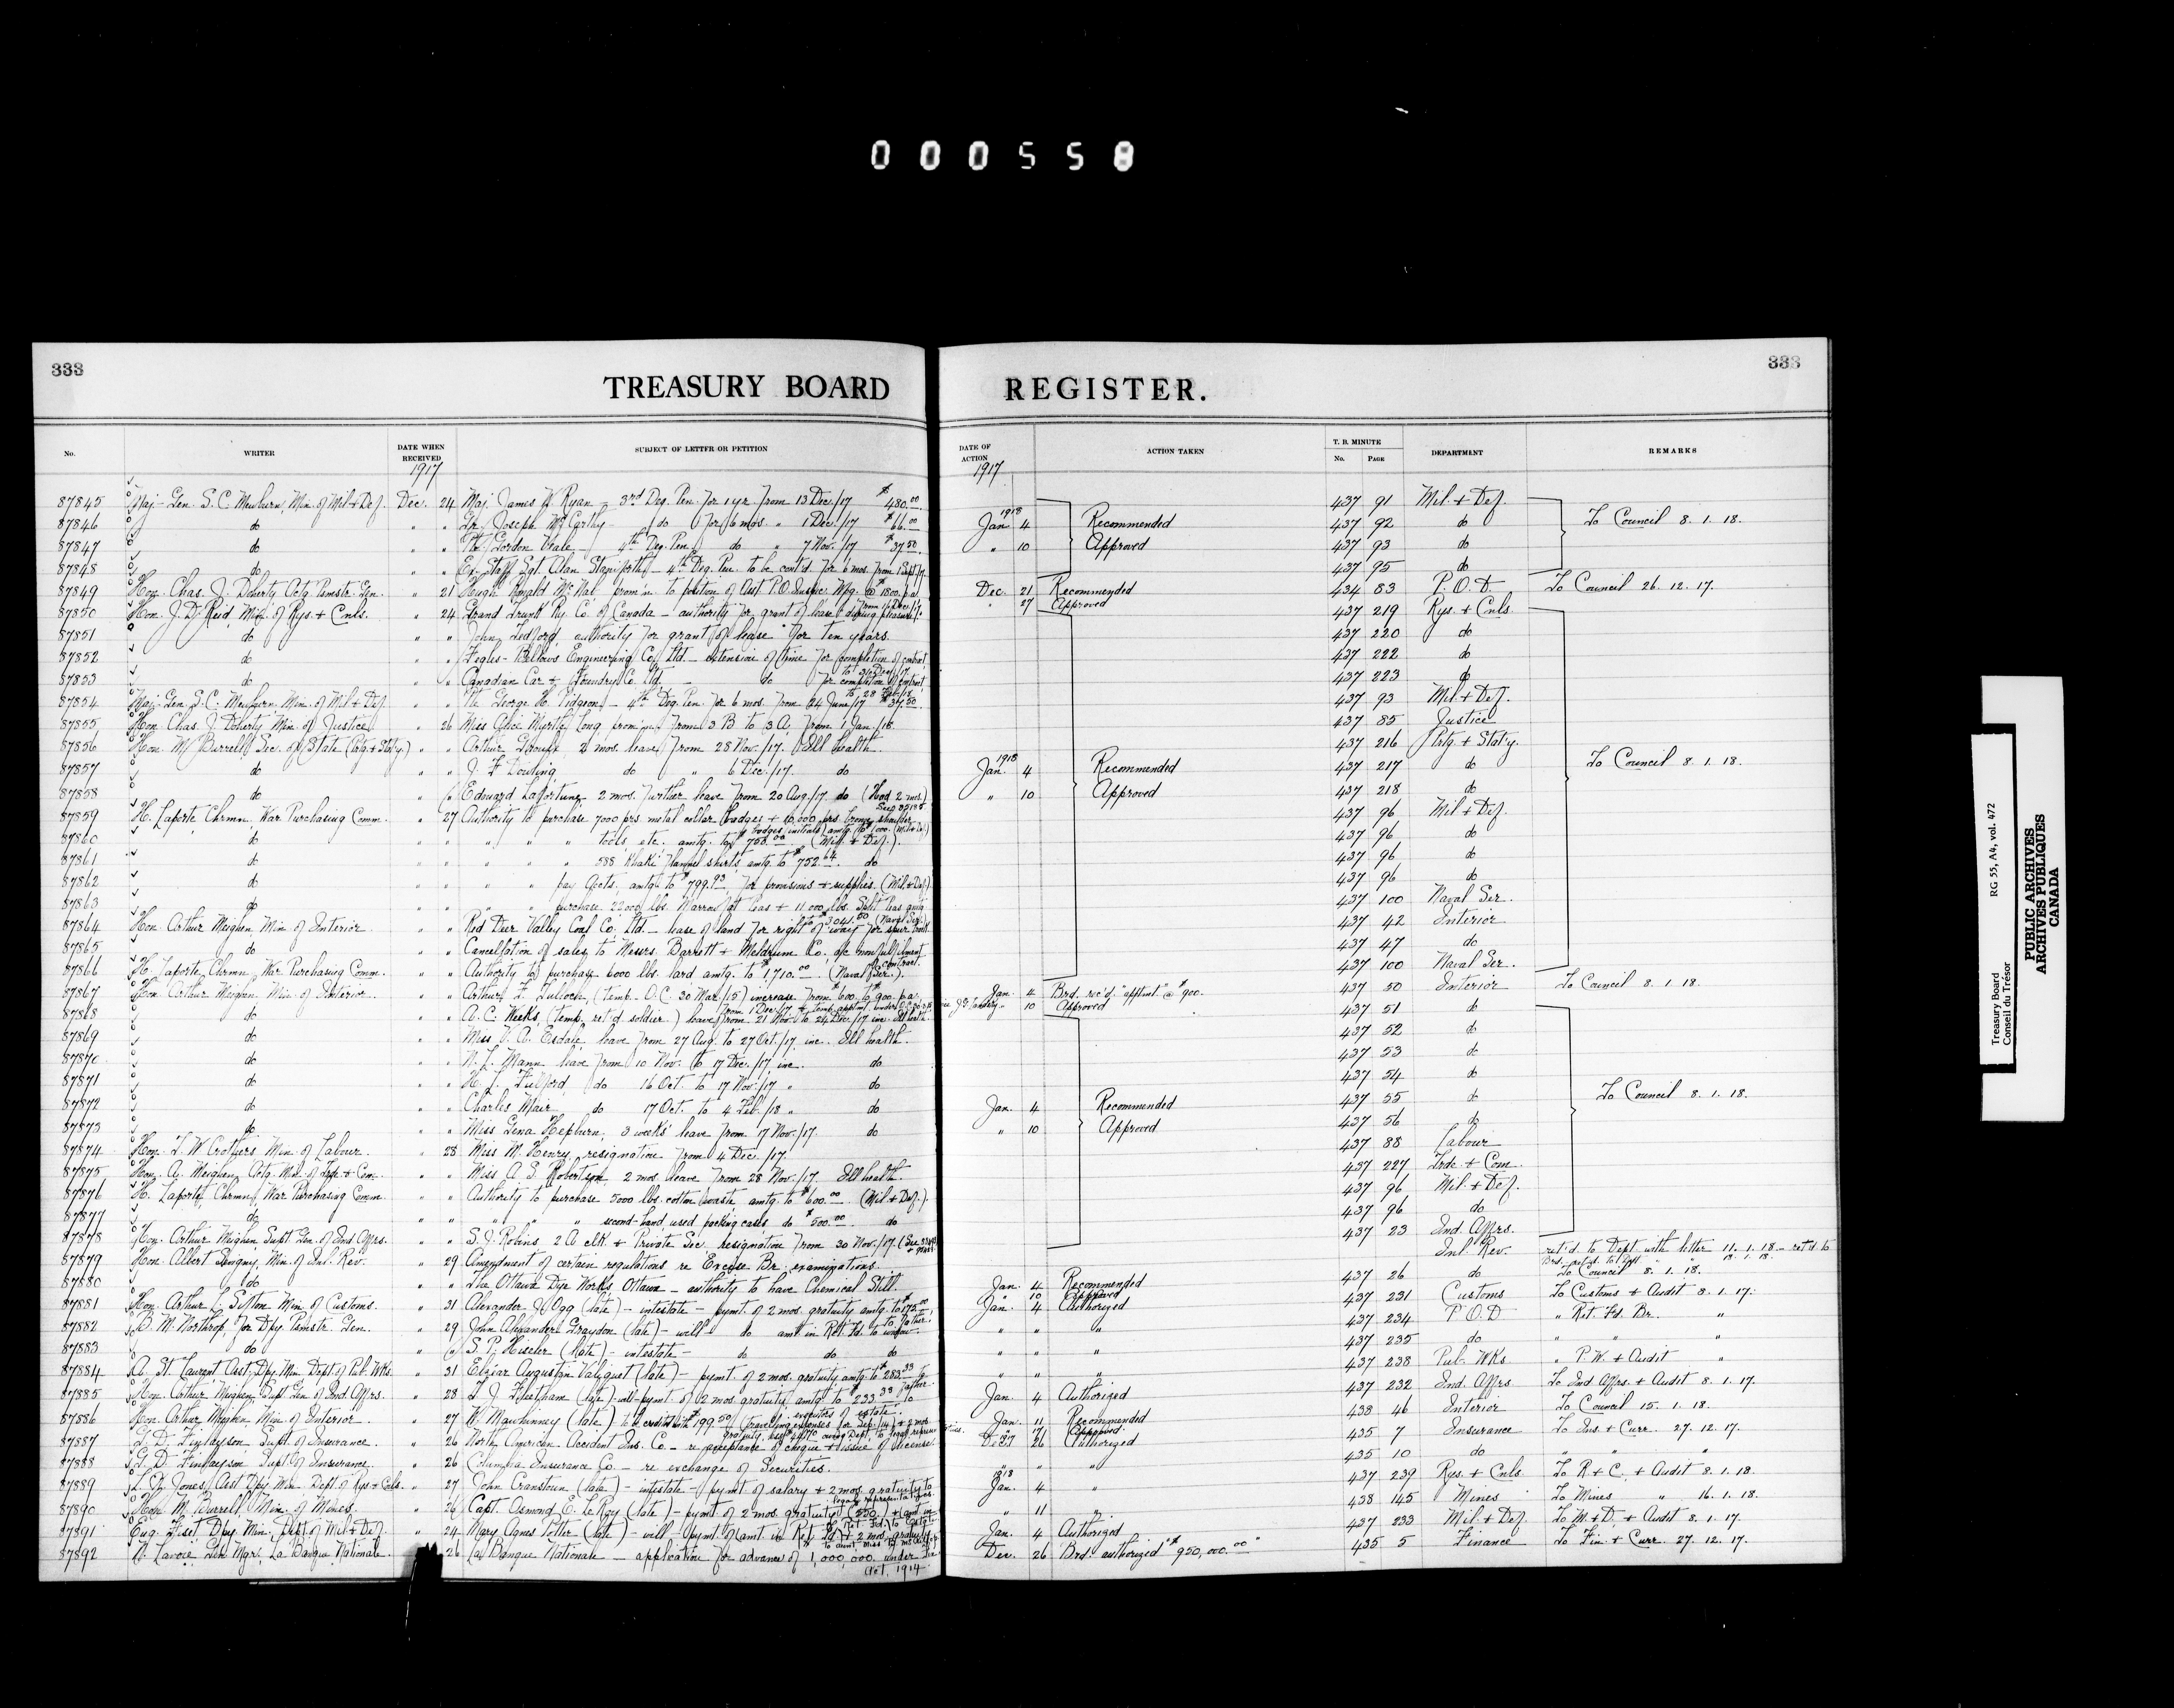 000558
333
TREASURY BOARD REGISTER.
333
No. WRITER DATE WHEN RECEIVED SUBJECT OF LETTER OR PETITION DATE OF ACTION ACTION TAKEN T. B. MINUTE No. PAGE DEPARTMENT REMARKS
1917 1917
87845 Maj-Gen. S. C. Mewburn, Min. of Mil + Def. Dec. 24 Maj. James W. Ryan - 3rd Deg. Pen. for 1 yr. from 13 Dec./17 $480.00 437 91 Mil. + Def.
87846 do " " Gr. Joseph McCarthy - do for 6 mos. " 1 Dec./17 $66.00 1918 Jan. 4 Recommended 437 92 do To Council 8. 1. 18.
87847 do " " Pte. Gordon Veale - 4th Deg. Pen. do " 7 Nov./17 $37.50 " 10 Approved 437 93 do
87848 do " " Ex-Staff Sgt. Alan Staniforth - 4th Deg. Pen. to be cont'd. for 6 mos. from 1 Sept/17 437 95 do
87849 Hon. Chas. J. Doherty Actg. Pmstr. Gen. " 21 Hugh Ronald McNab prom'n. to position of Asst. P.O. Inspec. Wpg. @ $1800. p.a. from 1 Dec./17 Dec. 21 Recommended 434 83 P. O. D. To Council 26. 12. 17.
" 27 Approved
87850 Hon. J. D. Reid, Min. of Rys. + Cnls. " 24 Grand Trunk Ry. Co. of Canada - authority for grant of lease during pleasure 437 219 Rys. + Cnls.
87851 do " " John Ledford, authority for grant of lease for ten years. 437 220 do
87852 do " " Fegles-Bellows Engineering Co. Ltd. - extension of time for completion of contract 437 222 do
87853 do " " Canadian Car + Foundry Co. Ltd. - do for completion of contract to 28 Feb./18 437 223 do
87854 Maj-Gen. S. C. Mewburn, Min. of Mil + Def. " " Pte. George H. Pidgeon - 4th Deg. Pen. for 6 mos. from 24 June/17 $37.50 437 93 Mil. + Def.
87855 Hon. Chas. J. Doherty, Min. of Justice " 26 Miss Myrtle Long prom'n. from 3 B to 3 A, from 1 Jan./18. 437 85 Justice
87856 Hon. M. Burrell, Sec. of State (Prtg. + Stat'y.) " " Arthur Groulx 2 mos. leave from 28 Nov./17. Ill health. 437 216 Prtg. + Stat'y.
87857 do " " J. F. Dowling do " 6 Dec./17. do 1918 Jan. 4 Recommended 437 217 do To Council 8. 1. 18.
87858 do " " Edouard Lafortune 2 mos. further leave from 20 Aug./17. do (Had 2 mos.) " 10 Approved 437 218 do
87859 H. Laporte, Chrmn. War Purchasing Comm. " 27 Authority to purchase 7000 prs. metal collar badges + 10,000 prs. bronze shoulder badges (initials) 437 96 Mil. + Def.
87860 do " " " " " tools, etc. amtg. to $750.00 (Mil. + Def.). 437 96 do
87861 do " " " " " 588 Khaki flannel shirts, amtg. to $752.64. do 437 96 do
87862 do " " " " pay accts. amtg. to $799.93, for provisions + supplies. (Mil. + Def.) 437 96 do
87863 do " " " " purchase 22000 lbs. Marrowfat Peas + 11,000 lbs. Split Peas amtg. to $3041.50 (Naval Ser.) 437 100 Naval Ser.
87864 Hon. Arthur Meighen Min. of Interior " " Red Deer Valley Coal Co. Ltd. - lease of land for right of way for spur track 437 42 Interior
87865 do " " Cancellation of sales to Messrs. Barrett + Meldrum Co., a/c nonfulfilment contract. 437 47 do
87866 H. Laporte, Chrmn. War Purchasing Comm. " " Authority to purchase 6000 lbs. lard amtg. to $1,710.00. (Naval Ser.). 437 100 Naval Ser.
87867 Hon. Arthur Meighen, Min. of Interior. " " Arthur F. Tulloch, (temp. - O.C. 30 Mar./15) increase from $600. to $900. p.a. from 1 Dec./17 Jan. 4 Brd. rec'd. "apptmt." @ $900. 437 50 Interior To Council 8. 1. 18.
" 10 Approved
87868 do " " A. C. Weeks, (temp. ret'd soldier) leave from 21 Nov. to 24 Dec./17 inc. Ill health. 437 51 do
87869 do " " Miss V. A. Esdale, leave from 27 Aug. to 27 Oct./17. inc. Ill health. 437 52 do
87870 do " " N. L. Mann leave from 10 Nov. to 17 Dec./17, inc. do 437 53 do
87871 do " " H. L. Fulford, do 16 Oct. to 17 Nov./17 " do 437 54 do
87872 do " " Charles Mair do 17 Oct. to 4 Feb./18 " do Jan. 4 Recommended 437 55 do To Council 8. 1. 18.
87873 do " " Miss Lena Hepburn, 3 weeks' leave from 17 Nov./17. do " 10 Approved 437 56 do
87874 Hon. T. W. Crothers Min. of Labour. " 28 Miss M. Henry, resignation from 4 Dec./17 437 88 Labour
87875 Hon. A. Meighen, Actg. Min. of Trde. + Com. " " Miss A. S. Robertson, 2 mos. leave from 28 Nov./17. Ill health. 437 227 Trde. + Com.
87876 H. Laporte, Chrmn. War Purchasing Comm. " " Authority to purchase 5000 lbs. cotton waste, amtg. to $600.00. (Mil. + Def.). 437 96 Mil. + Def.
87877 do " " " " " second-hand, used packing cases do $500.00. do 437 96 do
87878 Hon. Arthur Meighen Supt. Gen. of Ind. Affrs. " " S. J. Robins 2 A clk. + Private Sec. resignation from 30 Nov./17. 437 23 Ind. Affrs.
87879 Hon. Albert Sevigny, Min. of Inl. Rev. " 29 Amendment of certain regulations re Excise Br. examinations. Inl. Rev. ret'd. to Dept. with letter 11. 1. 18 - ret'd. to
87880 do " " The Ottawa Dye Works, Ottawa - authority to have Chemical Still. Jan. 4 Recommended 437 26 do To Council 8. 1. 18.
" 10 Approved
87881 Hon. Arthur L. Sifton Min. of Customs. " 31 Alexander J. Ogg (late) - intestate - pymt. of 2 mos. gratuity amtg. to $175.00 to father. Jan. 4 Authorized 437 231 Customs To Customs + Audit 8. 1. 17.
87882 B. M. Northrop, for Dpy. Pmstr. Gen. " 29 John Alexander Graydon (late) - will - do amt. in Ret. Fd. to widow. " " " 437 234 P. O. D. " Ret. Fd. Br. "
87883 do " " S. P. Hisler (late) - intestate - do do do " " " 437 235 do " " "
87884 A. St. Laurent, Asst. Dpy. Min. Dept. of Pub. Wks. " 31 Elzéar Augustin Valiquet (late) - pymt. of 2 mos. gratuity, amtg. to $283.33 to father. " " " 437 238 Pub. Wks. " P. W. + Audit "
87885 Hon. Arthur Meighen, Supt. Gen. of Ind. Affrs. " 28 T. J. Fleetham (late) will - pymt. of 2 mos. gratuity, amtg. to $233.33 to executors of estate. Jan. 4 Authorized 437 232 Ind. Affrs. To Ind. Affrs. + Audit 8. 1. 17.
87886 Hon. Arthur Meighen, Min. of Interior. " 27 W. Mawhinney (late) to be credited with $199.50 (travelling expenses for Sep./14) + 2 mos. gratuity Jan. 11 Recommended 438 46 Interior To Council 15. 1. 18.
" 17 Approved.
87887 G. D. Finlayson, Supt. of Insurance. " 26 North American Accident Ins. Co. - re acceptance of cheque + issue of license. Dec. 26 Authorized 435 7 Insurance To Ins. + Curr. 27. 12. 17.
87888 G. D. Finlayson Supt. of Insurance. " 26 Columbia Insurance Co. - re exchange of Securities. " " " 435 10 do " " "
87889 L. K. Jones, Asst. Dpy. Min. Dept. of Rys + Cnls. " 27 John Cranstoun (late) - intestate - pymt. of salary + 2 mos. gratuity to legal representatives. 1918 Jan. 4 " 437 239 Rys. + Cnls. To R + C. + Audit 8. 1. 18.
87890 Hon. M. Burrell, Min. of Mines. " 26 Capt. Osmond E. LeRoy (late) - pymt. of 2 mos. gratuity " 11 " 438 145 Mines To Mines " 16. 1. 18.
87891 Eug. Fiset, Dpy. Min. Dept. of Mil + Def. " 24 Mary Agnes Potter (late) - will - pymt. of amt. in Ret. Fd. + 2 mos. gratuity Jan. 4 Authorized 437 233 Mil. + Def. To M. + D. + Audit 8. 1. 17.
87892 N. Lavoie, Gen. Mgr., La Banque Nationale. 26 La Banque Nationale - application for advance of $1,000,000. under Fin. Act, 1914 Dec. 26 Brd. authorized "$950,000.00" 435 5 Finance To Fin. + Curr. 27. 12. 17.
Treasury Board RG 55, A4, vol. 472
Conseil du Trésor
PUBLIC ARCHIVES
ARCHIVES PUBLIQUES
CANADA